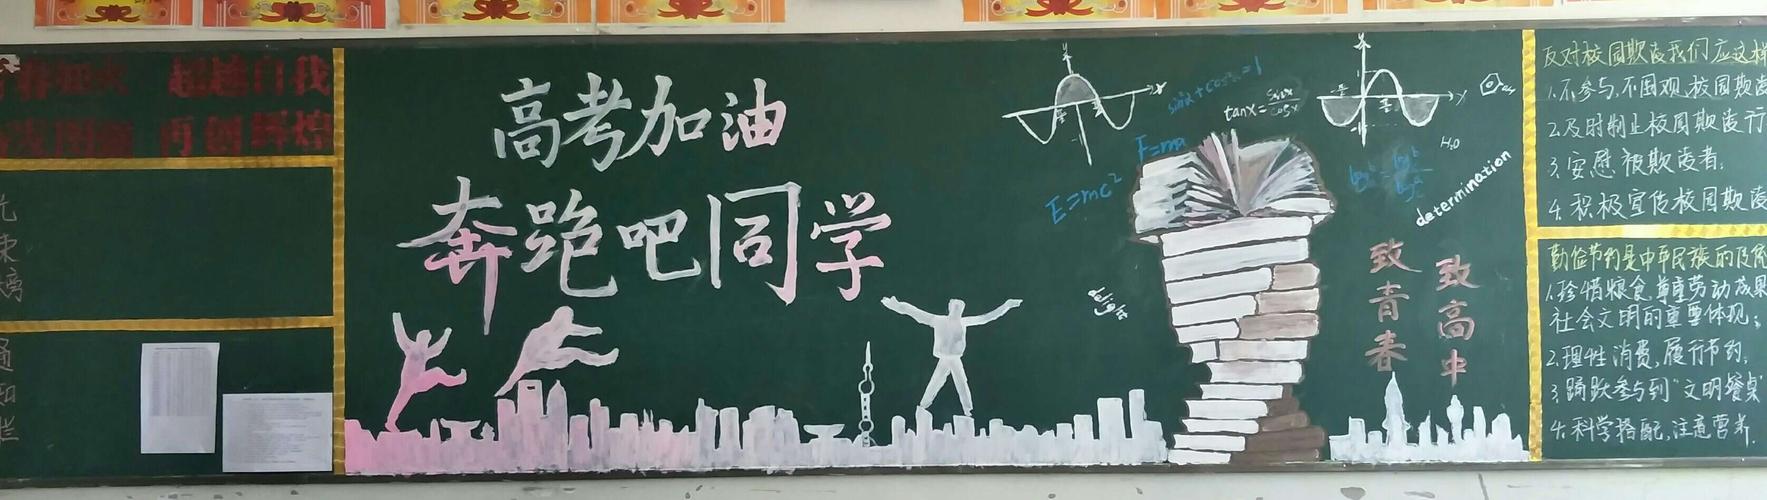 超越自我
再创辉煌
光
荣
榜
通
知
栏
高考加油
奔跑吧同学
sin²x+cos²x=1
tanx=sinx/cosx
F=ma
E=mc²
H₂O
determination
delight
致青春
致高中
反对校园欺凌我们应这样
1.不参与,不围观,校园欺凌
2.及时制止校园欺凌行
3.安慰被欺凌者;
4.积极宣传校园欺凌
勤俭节约是中华民族的
1.珍惜粮食,尊重劳动成果
社会文明的重要体现;
2.理性消费,履行节约,
3.踊跃参与到“文明餐桌”
4.科学搭配,注意营养.